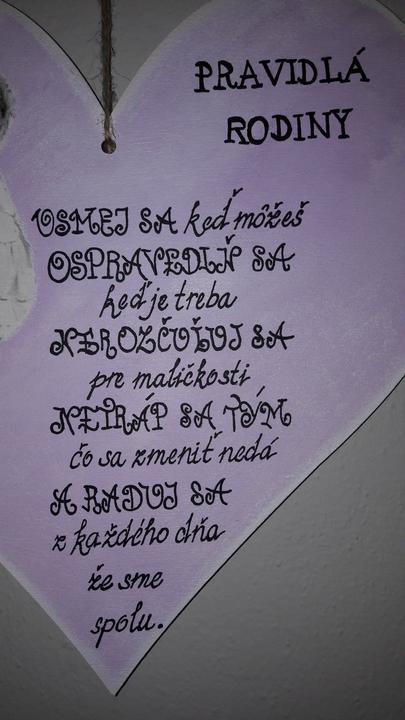 PRAVIDLÁ
RODINY
USMEJ SA keď môžeš
OSPRAVEDLŇ SA
keď je treba
NEROZČUĽUJ SA
pre maličkosti
NETRÁP SA TÝM
čo sa zmeniť nedá
A RADUJ SA
z každého dňa
že sme
spolu.